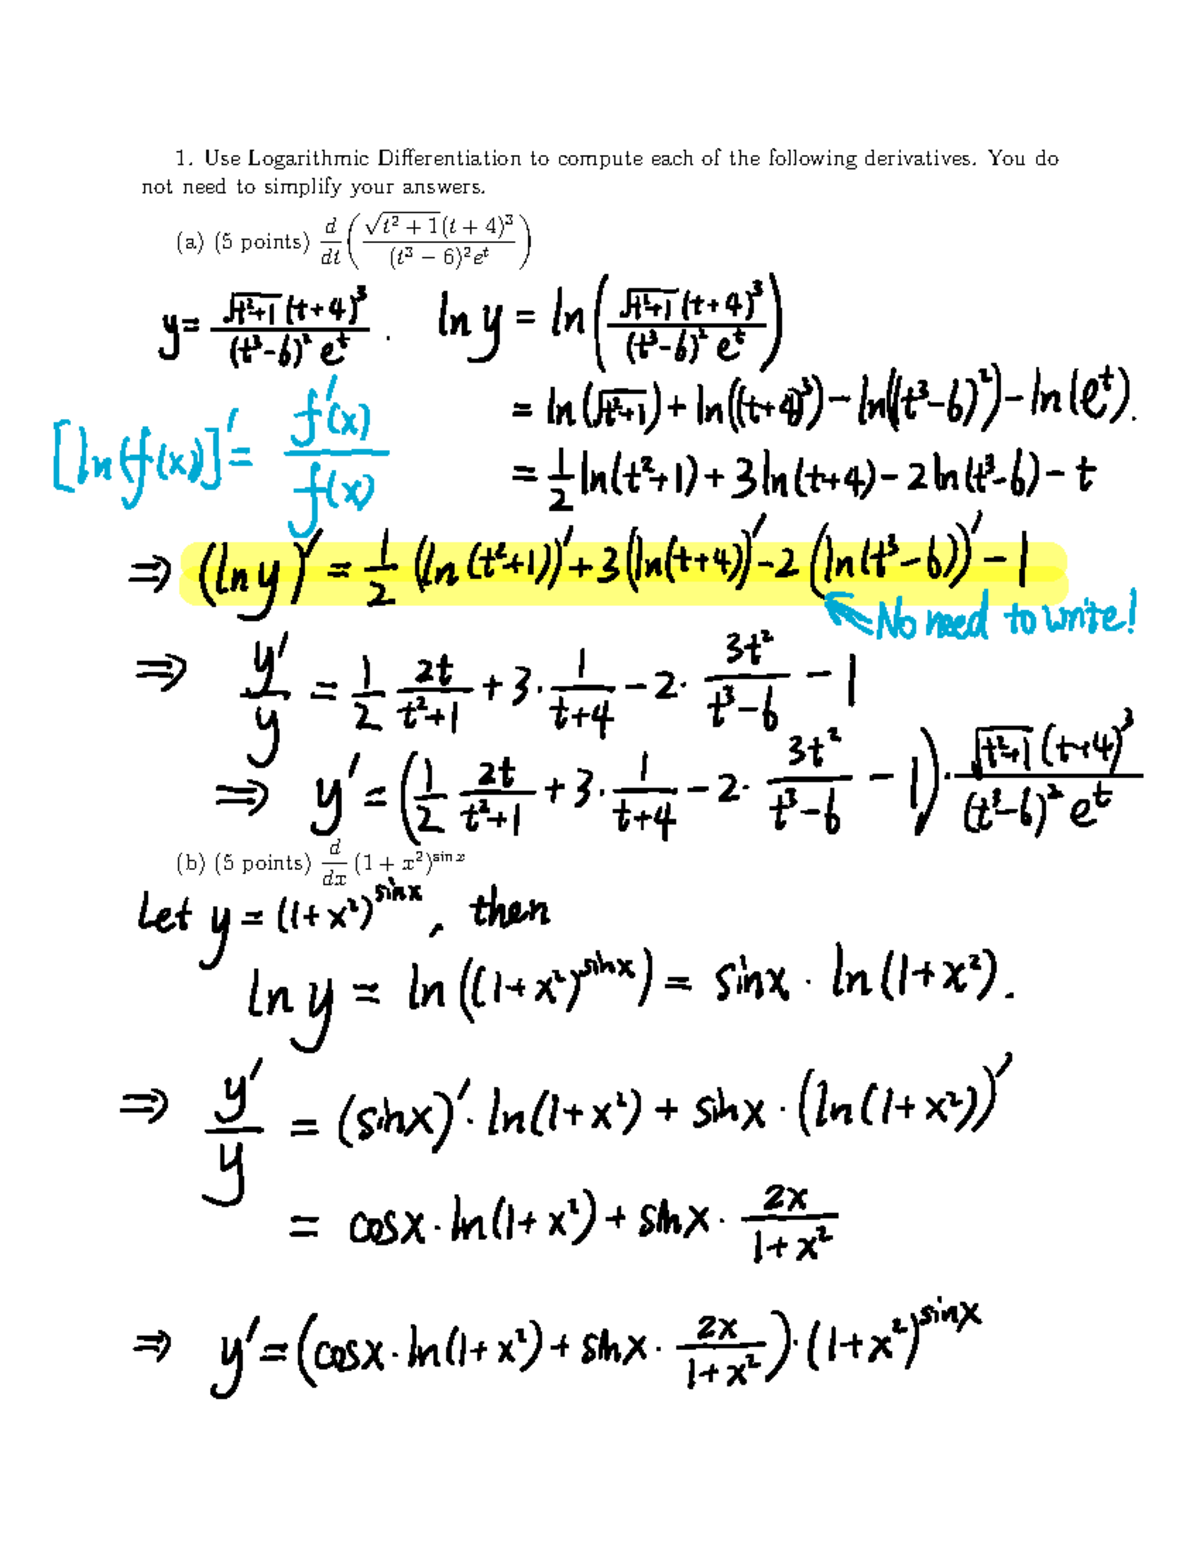 1. Use Logarithmic Differentiation to compute each of the following derivatives. You do
not need to simplify your answers.
(a) (5 points) d/dt ( √(t² + 1)(t + 4)³ / (t³ − 6)²eᵗ )
y = √(t²+1) (t+4)³ / (t³−6)² eᵗ . ln y = ln( √(t²+1) (t+4)³ / (t³−6)² eᵗ )
= ln(√(t²+1)) + ln((t+4)³) − ln((t³−6)²) − ln(eᵗ).
[ln(f(x))]′ = f′(x) / f(x)
= 1/2 ln(t²+1) + 3 ln(t+4) − 2 ln(t³−6) − t
⇒ (ln y)′ = 1/2 (ln(t²+1))′ + 3(ln(t+4))′ − 2(ln(t³−6))′ − 1
No need to write!
⇒ y′/y = 1/2 2t/(t²+1) + 3 · 1/(t+4) − 2 · 3t²/(t³−6) − 1
⇒ y′ = (1/2 2t/(t²+1) + 3 · 1/(t+4) − 2 · 3t²/(t³−6) − 1) · √(t²+1) (t+4)³ / (t³−6)² eᵗ
(b) (5 points) d/dx (1 + x²)^(sin x)
Let y = (1+x²)^(sinx) , then
ln y = ln((1+x²)^(sinx)) = sinx · ln(1+x²).
⇒ y′/y = (sinx)′ · ln(1+x²) + sinx · (ln(1+x²))′
= cosx · ln(1+x²) + sinx · 2x/(1+x²)
⇒ y′ = (cosx · ln(1+x²) + sinx · 2x/(1+x²)) · (1+x²)^(sinx)